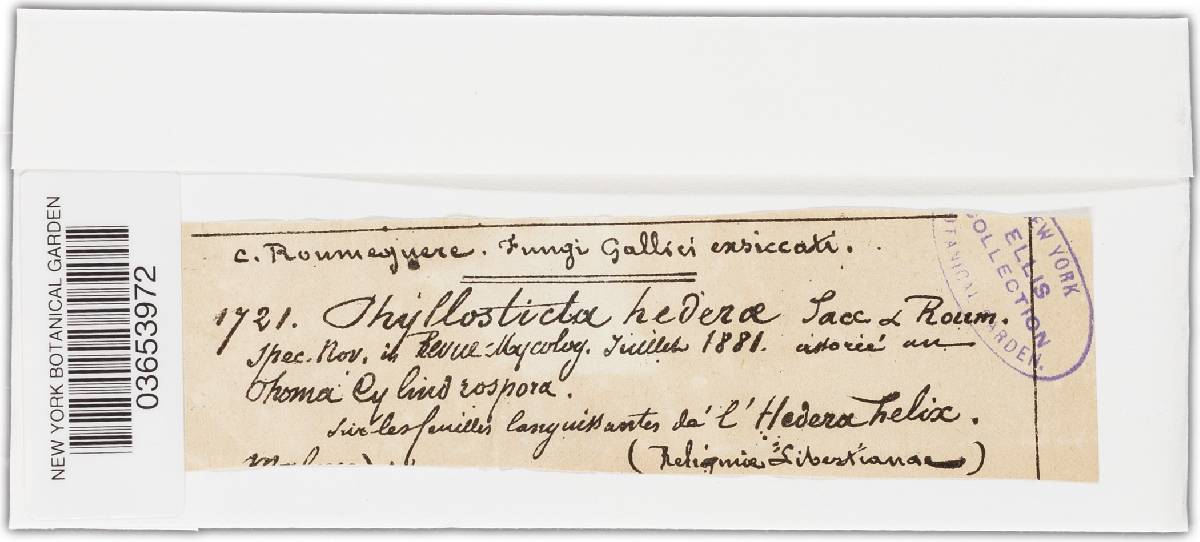 NEW YORK BOTANICAL GARDEN
03653972
C. Roumeguere. Fungi Gallici exsiccati.
1721. Phyllosticta hederæ Sacc & Roum.
Spec. Nov. in Revue Mycolog. Juillet 1881. associé au
Phoma Cylindrospora.
sur les feuilles languissantes de l' Hedera helix.
(Reliquiæ Libertianae)
NEW YORK
ELLIS
COLLECTION
BOTANICAL GARDEN.